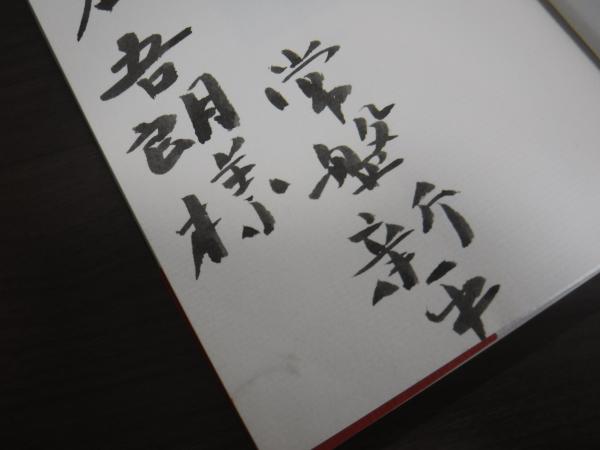 吾朗様
常盤新平